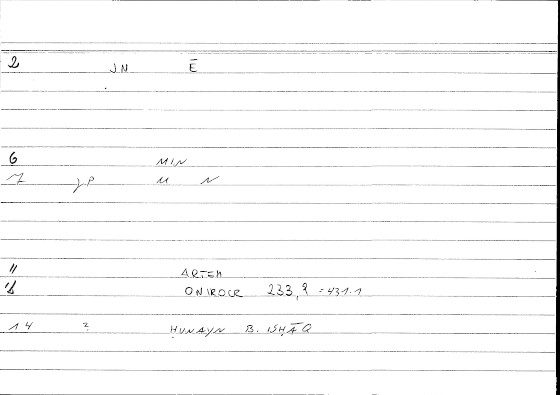 2 JN Ē
6 MIN
7 JP M N
11 ARTEM
12 ONIROCR 233, 8 = 431.1
14 ? ḤUNAYN B. ISḤĀQ